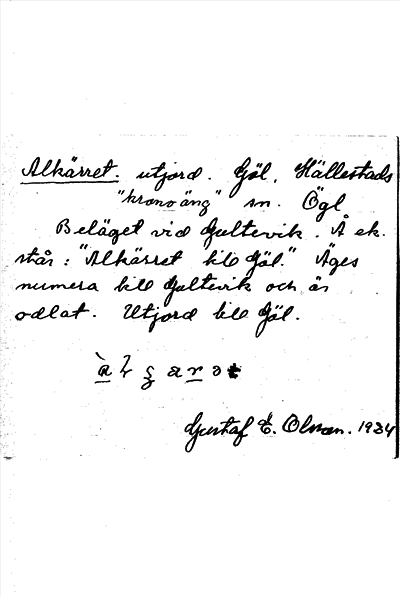 Alkärret. utjord. Göl, Hällestads
"kronoäng" sn. Ögl
Beläget vid Gultevik. Å ek.
står: "Alkärret till Göl." Äges
numera till Gultevik och är
odlat. Utjord till Göl.
Gustaf E. Olsson. 1934